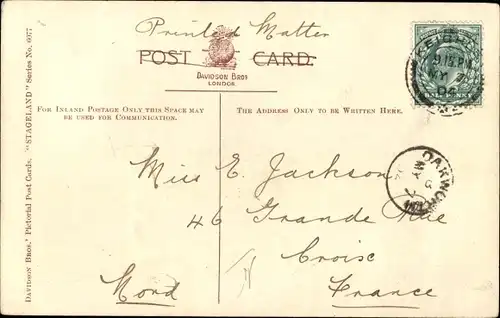 Printed Matter
POST CARD.
DAVIDSON BROS
LONDON.
FOR INLAND POSTAGE ONLY THIS SPACE MAY
BE USED FOR COMMUNICATION.
THE ADDRESS ONLY TO BE WRITTEN HERE.
DAVIDSON BROS.' PICTORIAL POST CARDS. "STAGELAND" SERIES NO. 6077.
9 15 PM
MY
OAKWORTH
MY
Miss E. Jackson
46 Grande Rue
Croix
Nord
France